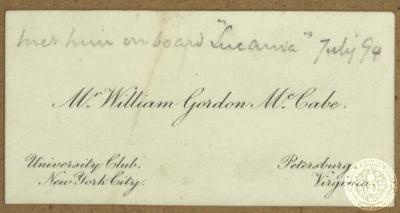 met him on board "Lucania" July 94
Mr. William Gordon McCabe.
University Club.
New York City.
Petersburg
Virginia.